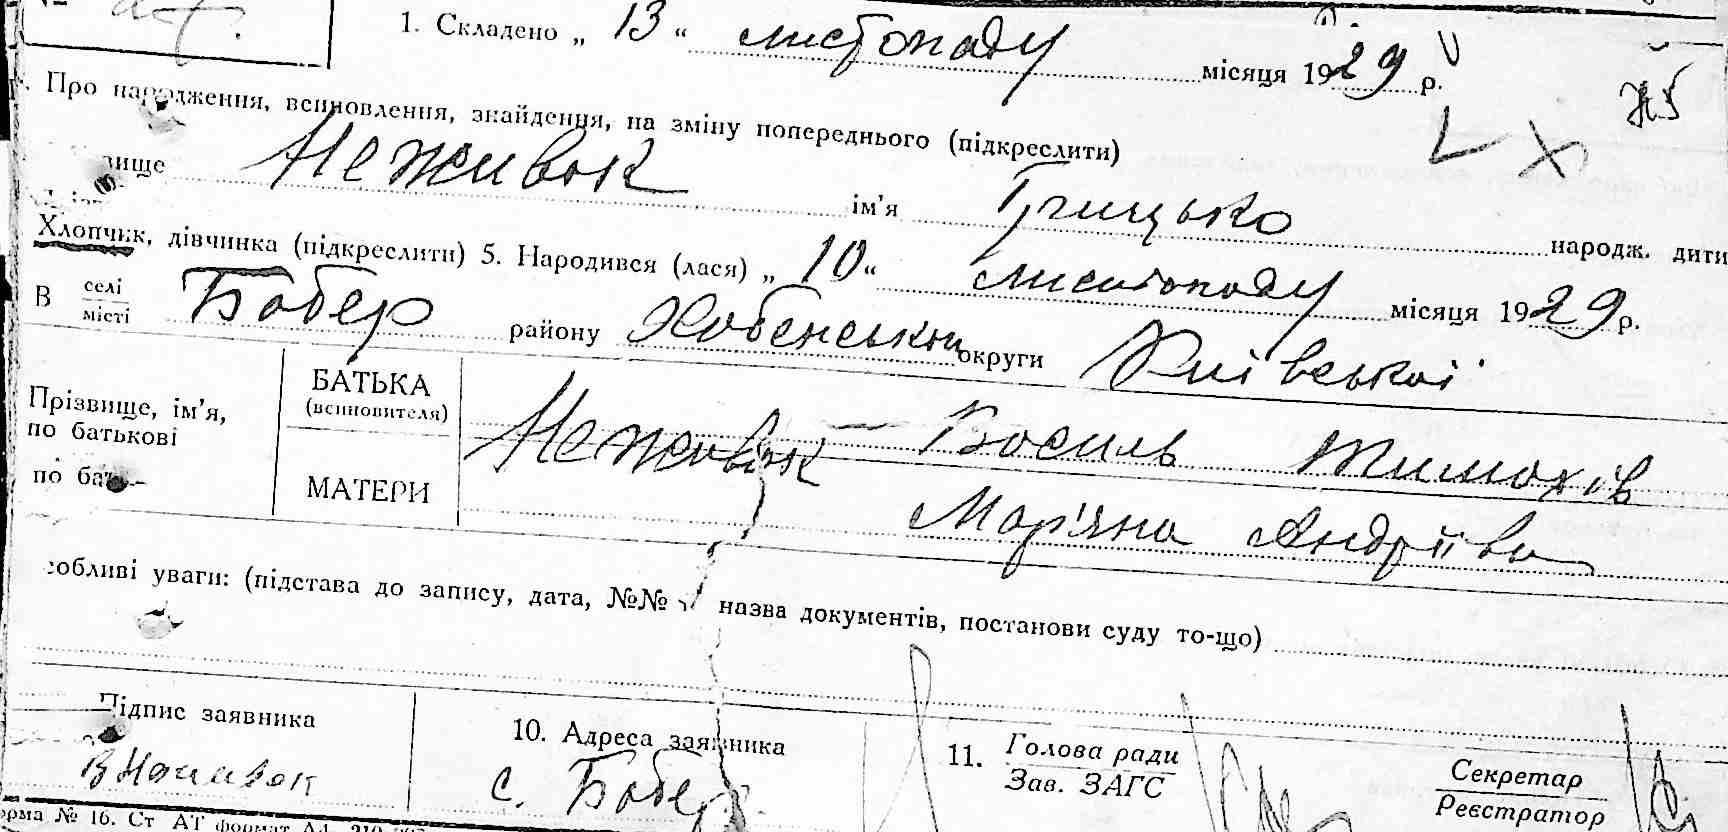 1. Складено „ 13 “ листопаду місяця 1929 р.
Про народження, всиновлення, знайдення, на зміну попереднього (підкреслити)
вище Неживок ім’я Грицько народж. дити
Хлопчик, дівчинка (підкреслити) 5. Народився (лася) „ 10 “ листопаду місяця 1929 р.
В селі
місті Бобер району Хобенськой округи Київської
Прізвище, ім’я,
по батькові
БАТЬКА
(всиновителя)
Неживок — Василь Тимохів
по бать-
МАТЕРИ
Мар'яна Андріївна
собливі уваги: (підстава до запису, дата, №№ назва документів, постанови суду то-що)
Підпис заявника
10. Адреса заявника
11. Голова ради
Зав. ЗАГС
Секретар
Реєстратор
с. Бобер
орма № 16. Ст АТ формат